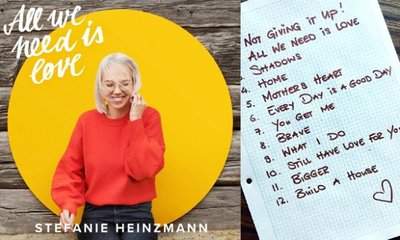 All we
need is
love
STEFANIE HEINZMANN
NOT GIVING IT UP!
ALL WE NEED IS LOVE
SHADOWS
4. HOME
5. MOTHER'S HEART
6. EVERY DAY IS A GOOD DAY
7. YOU GET ME
8. BRAVE
9. WHAT I DO
10. STILL HAVE LOVE FOR YOU
11. BIGGER
12. BUILD A HOUSE